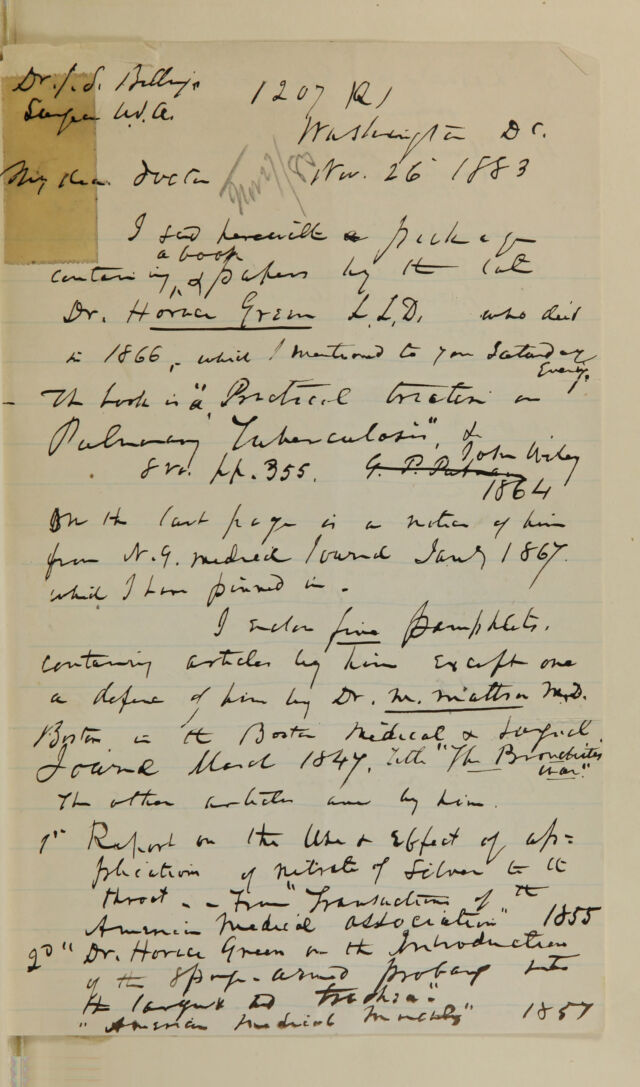 Dr. J. S. Billings
Surgeon U.S.A.
1207 Q
Washington D C.
Nov 27/83
My dear Doctor Nov. 26 1883
I send herewith a package
containing a book & papers by the late
Dr. Horace Green L.L.D. who died
in 1866, which I mentioned to you Saturday
Evening.
The book is "a Practical treatise on
Pulmonary Tuberculosis", &
8vo. pp. 355. G. P. Putnam John Wiley
1864
On the last page is a notice of him
from N.Y. Medical Journal Jany 1867.
which I have pinned in.
I enclose five pamphlets.
containing articles by him except one
a defence of him by Dr. M. Mattson M.D.
Boston in the Boston Medical & Surgical
Journal March 1847, title "The Bronchitis
War"
The other articles are by him.
1st Report on the Use & Effect of ap=
plication of nitrate of Silver to the
throat - - From "Transactions of the
American Medical association" 1855
2d " Dr. Horace Green on the Introduction
of the Sponge-armed probang into
the larynx and trachea".
"American Medical Monthly" 1857